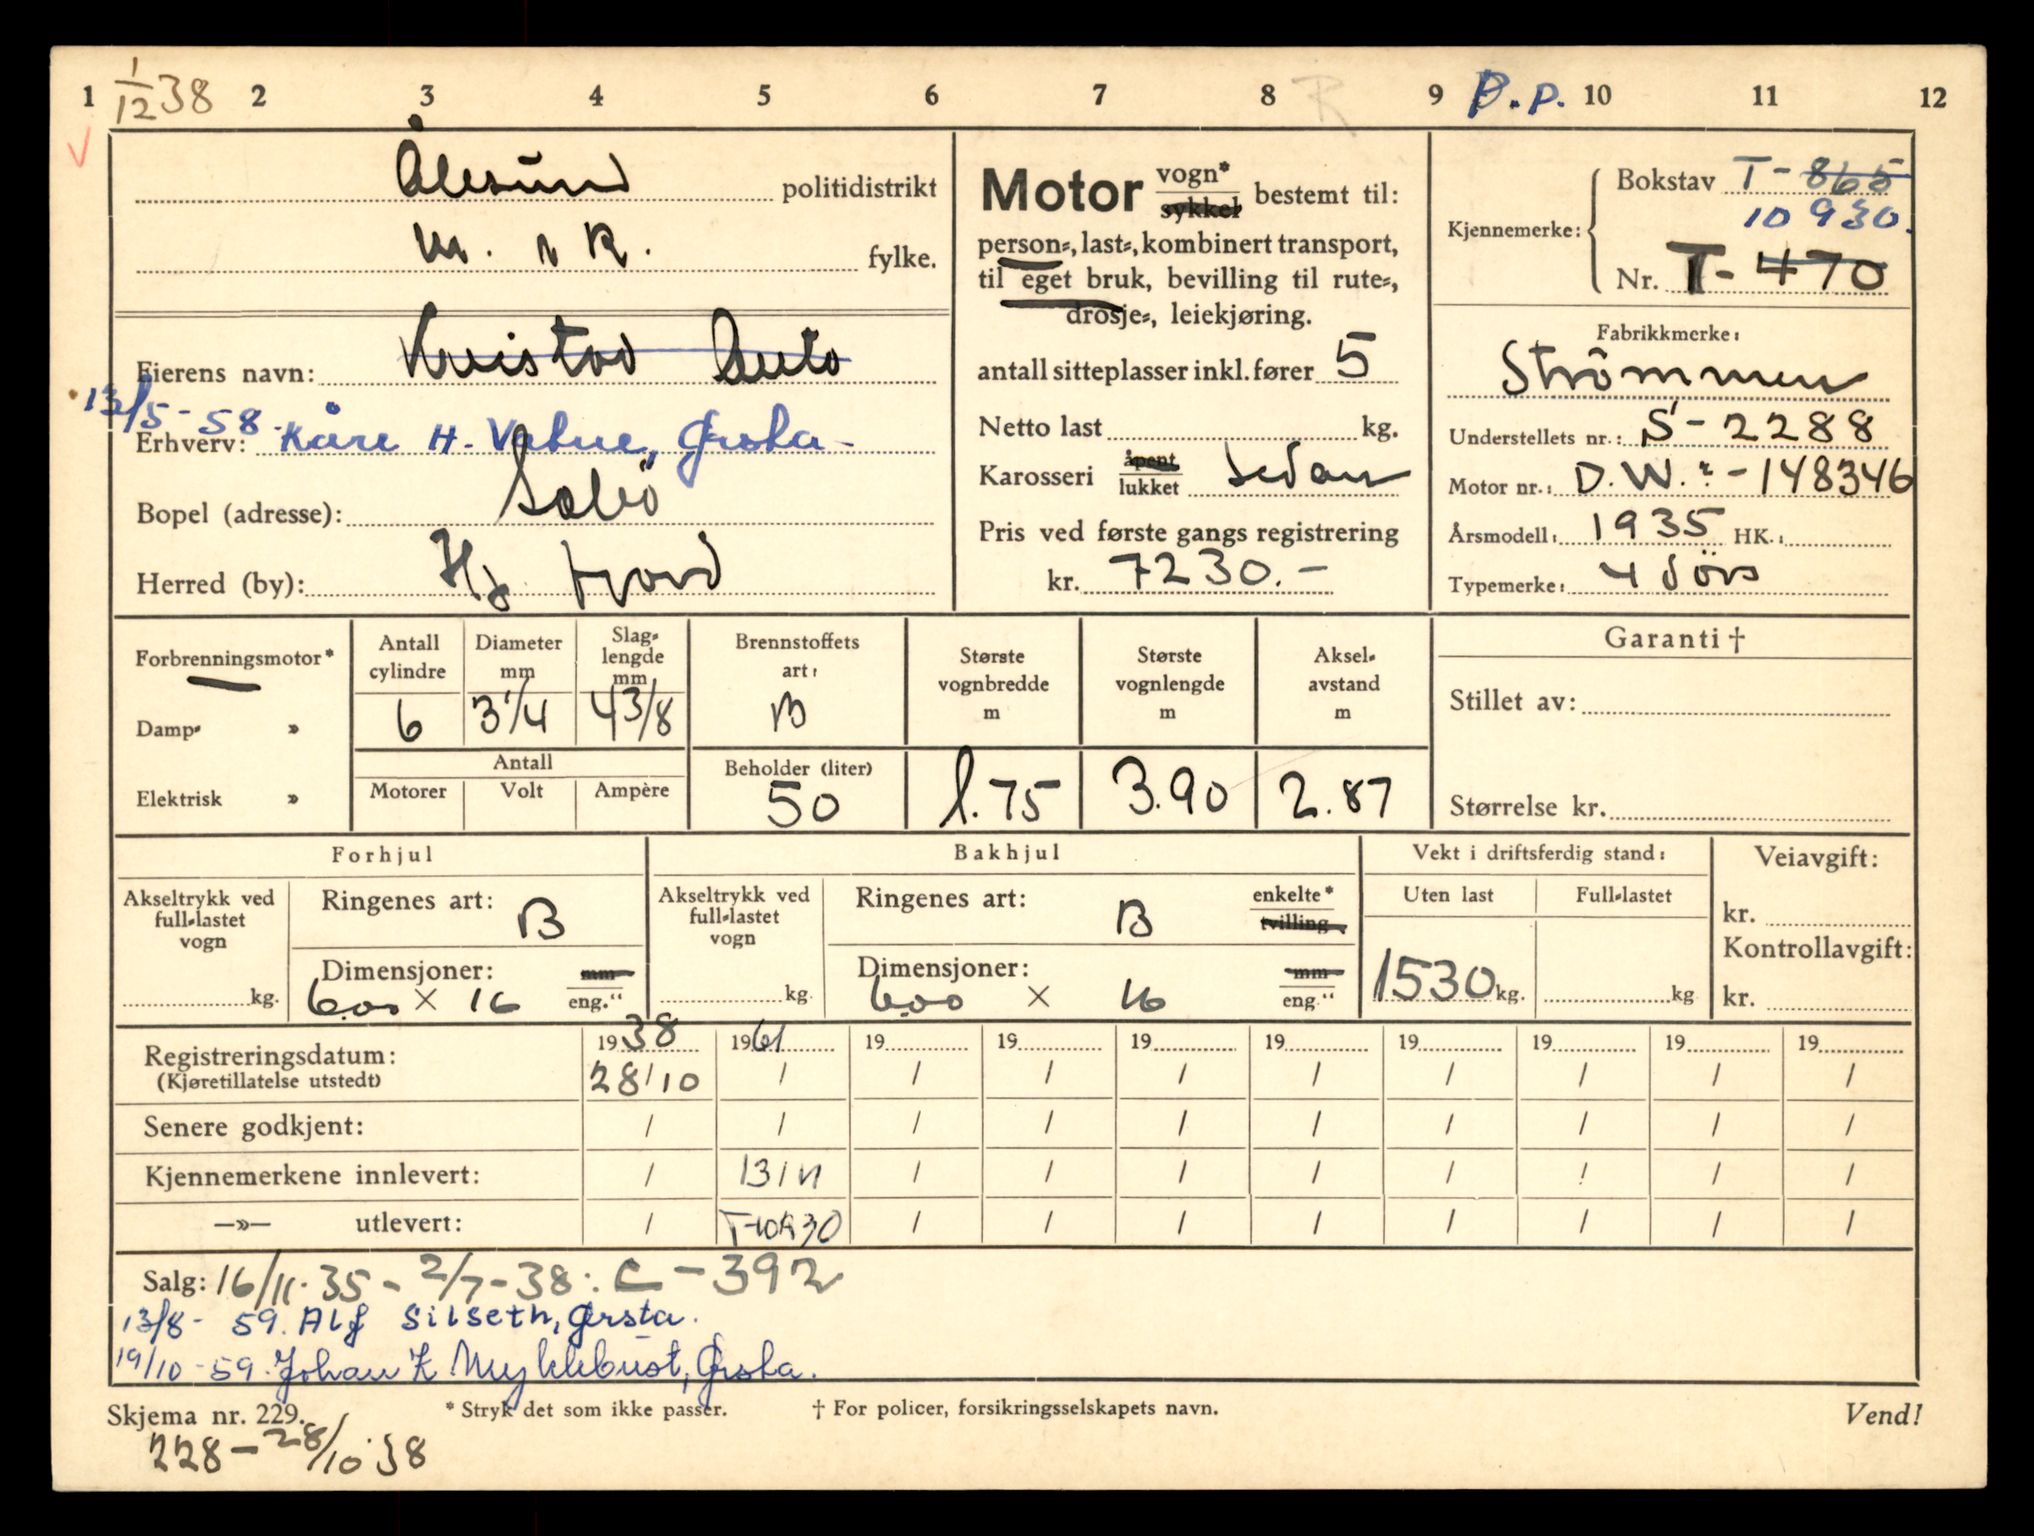 1 1/12 38 2 3 4 5 6 7 8 R 9 B.p. 10 11 12
Ålesund politidistrikt
M. n R. fylke.
Eierens navn: Kristov Auto
13/5-58. Erhverv: Kåre H. Vatne, Ørsta
Bopel (adresse): Sæbö
Herred (by): Hj. fjord
Motor vogn* sykkel bestemt til:
person-, last-, kombinert transport,
til eget bruk, bevilling til rute-,
drosje-, leiekjøring.
antall sitteplasser inkl. fører 5
Netto last kg.
Karosseri åpent lukket Sedan
Pris ved første gangs registrering
kr. 7230.-
Kjennemerke: Bokstav T-865
10930.
Nr. T-470
Fabrikkmerke:
Strömmen
Understellets nr.: S-2288
Motor nr.: D.W.:-148346
Årsmodell: 1935 HK.:
Typemerke: 4 dörs
Forbrenningsmotor*
Damp- »
Elektrisk »
Antall cylindre 6
Diameter mm 3 1/4
Slag-lengde mm 4 3/8
Antall
Motorer Volt Ampère
Brennstoffets art: B
Beholder (liter) 50
Største vognbredde m 1.75
Største vognlengde m 3.90
Aksel-avstand m 2.87
Garanti †
Stillet av:
Størrelse kr.
Forhjul
Akseltrykk ved full-lastet vogn kg.
Ringenes art: B
Dimensjoner: mm
6.00 × 16 eng."
Bakhjul
Akseltrykk ved full-lastet vogn kg.
Ringenes art: B enkelte* tvilling
Dimensjoner: mm
6.00 × 16 eng."
Vekt i driftsferdig stand:
Uten last Full-lastet
1530 kg. kg
Veiavgift:
kr.
Kontrollavgift:
kr.
1938 1961 19 19 19 19 19 19 19 19
Registreringsdatum: 28/10 / / / / / / / / /
(Kjøretillatelse utstedt)
Senere godkjent: / / / / / / / / / /
Kjennemerkene innlevert: / 13/11 / / / / / / / /
—»— utlevert: / T-10930 / / / / / / / /
Salg: 16/11-35 - 2/7-38: C-392
13/8- 59. Alf Silseth, Ørsta.
19/10-59. Johan K Myklebust, Ørsta.
Skjema nr. 229. * Stryk det som ikke passer. † For policer, forsikringsselskapets navn. Vend!
228 - 28/10 38